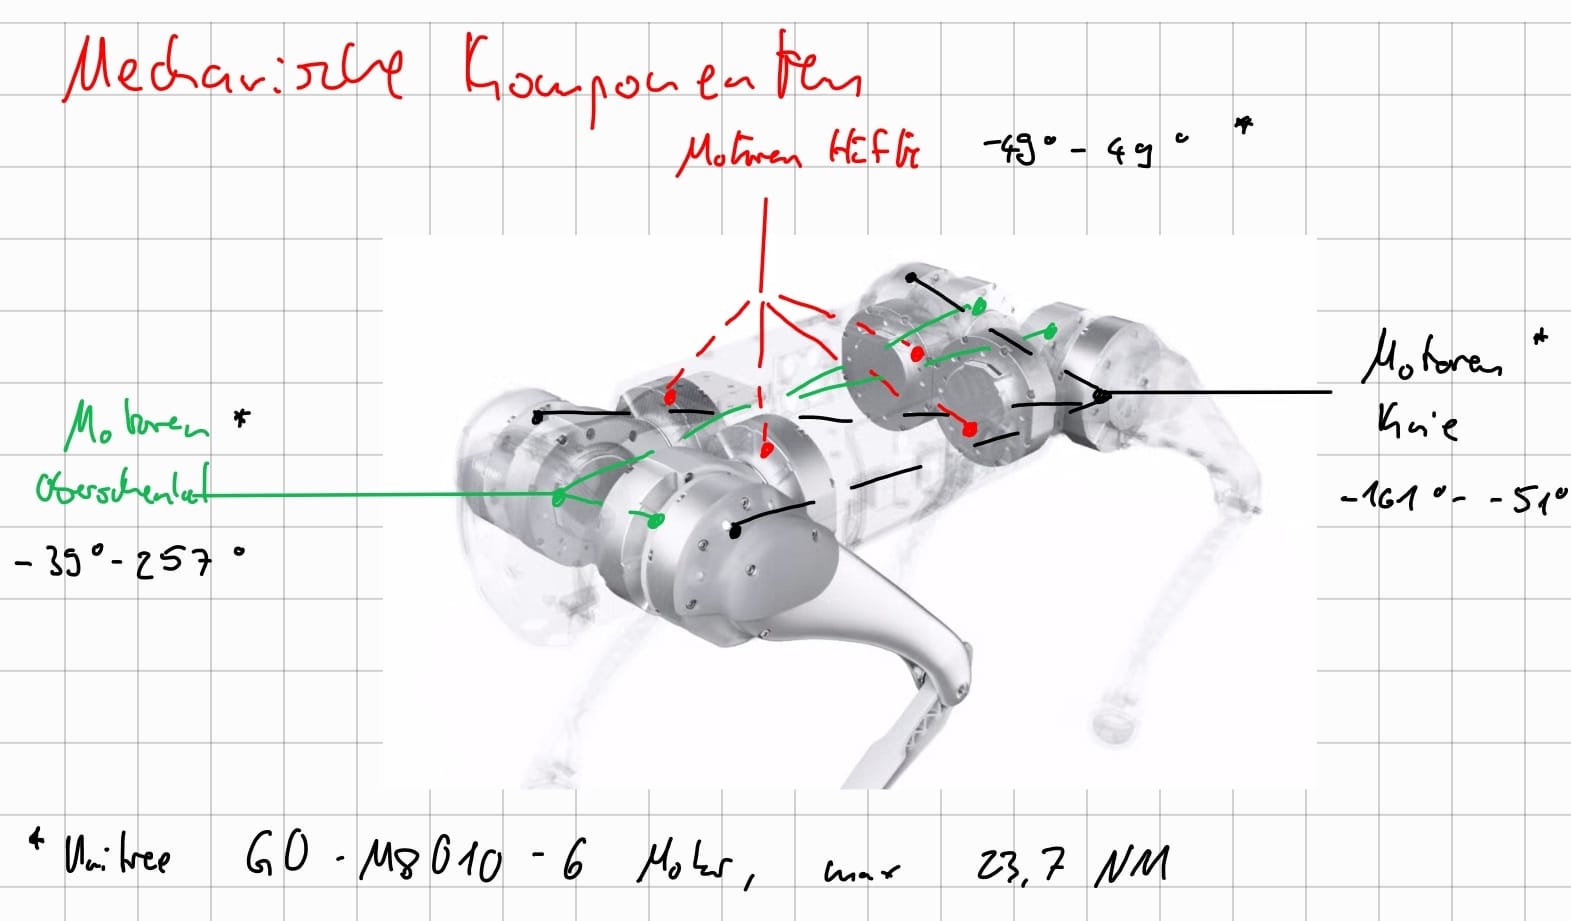 Mechanische Komponenten
Motoren Hüfte -49° - 49° *
Motoren *
Oberschenkel
-39° - 257°
Motoren *
Knie
-161° - -51°
* Unitree GO-M8010-6 Motor, max 23,7 NM